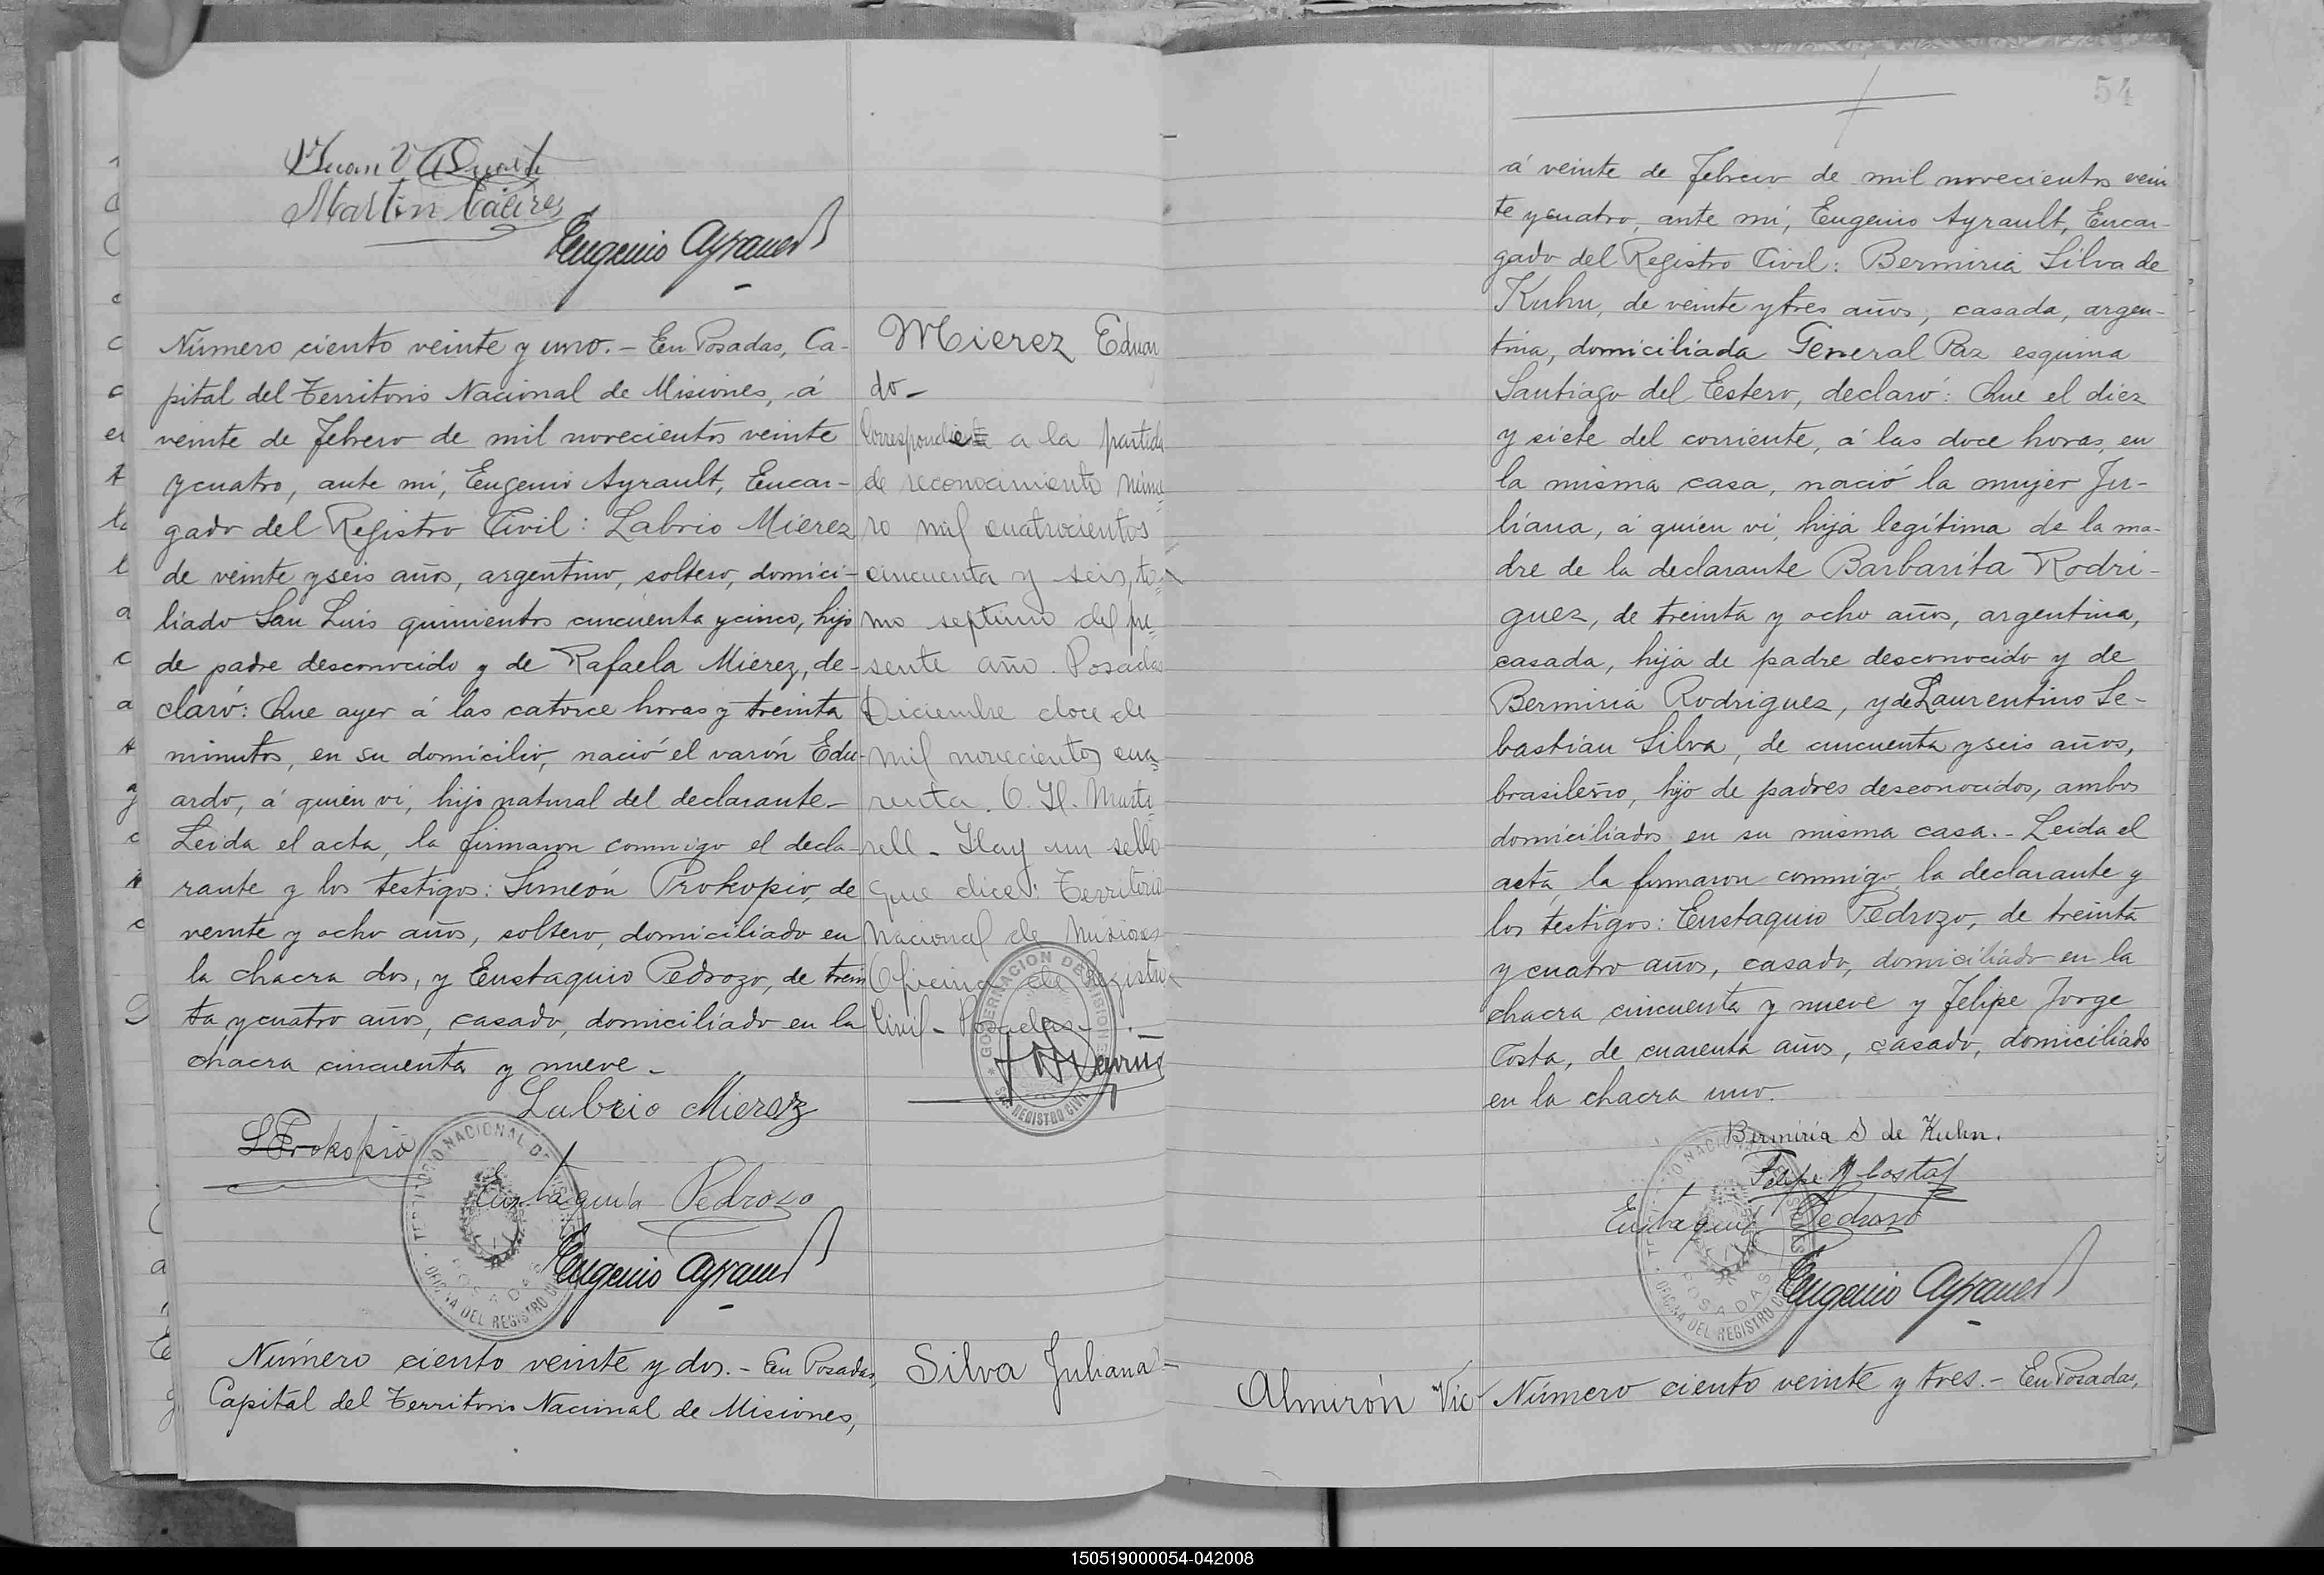 Juan V Duarte
Martin Cáceres
Eugenio Ayrault
Número ciento veinte y uno. - En Posadas, Ca-
pital del Territorio Nacional de Misiones, á
veinte de Febrero de mil novecientos veinte
y cuatro, ante mí, Eugenio Ayrault, Encar-
gado del Registro Civil: Labrio Mierez
de veinte y seis años, argentino, soltero, domici-
liado San Luis quinientos cincuenta y cinco, hijo
de padre desconocido y de Rafaela Mierez, de-
claró: Que ayer á las catorce horas y treinta
minutos, en su domicilio, nació el varón Edu-
ardo, á quien ví, hijo natural del declarante.-
Leída el acta, la firmaron conmigo el decla-
rante y los testigos: Simeón Prokopio, de
veinte y ocho años, soltero, domiciliado en
la chacra dos, y Eustaquio Pedrozo, de trein
ta y cuatro años, casado, domiciliado en la
chacra cincuenta y nueve.-
Labrio Mierez
S Prokopio
Eustaquio Pedrozo
Eugenio Ayrault
TERRITORIO NACIONAL DE MISIONES
POSADAS
OFICINA DEL REGISTRO CIVIL
Mierez Eduar
do-
Correspondiente a la partida
de reconocimiento núme
ro mil cuatrocientos
cincuenta y seis, to-
mo septimo del pre
sente año. Posadas
Diciembre doce de
mil novecientos cua
renta. O. H. Marto
rell - Hay un sello
que dice: Territorio
Nacional de Misiones
Oficina de Registro
Civil - Posadas -
GOBERNACION DE MISIONES
REGISTRO CIVIL
Número ciento veinte y dos. - En Posadas,
Capital del Territorio Nacional de Misiones,
Silva Juliana-
54
á veinte de Febrero de mil novecientos vein
te y cuatro, ante mí, Eugenio Ayrault, Encar-
gado del Registro Civil: Bermiria Silva de
Kuhn, de veinte y tres años, casada, argen-
tina, domiciliada General Paz esquina
Santiago del Estero, declaró: Que el diez
y siete del corriente, á las doce horas, en
la misma casa, nació la mujer Ju-
liana, á quien ví, hija legítima de la ma-
dre de la declarante Barbarita Rodri-
guez, de treinta y ocho años, argentina,
casada, hija de padre desconocido y de
Bermiria Rodriguez, y de Laurentino Se-
bastian Silva, de cincuenta y seis años,
brasileño, hijo de padres desconocidos, ambos
domiciliados en su misma casa.- Leida el
acta, la firmaron conmigo, la declarante y
los testigos: Eustaquio Pedrozo, de treinta
y cuatro años, casado, domiciliado en la
chacra cincuenta y nueve y Felipe Jorge
Costa, de cuarenta años, casado, domiciliado
en la chacra uno.
Bermiria S de Kuhn.
Felipe J Costa
Eustaquio Pedrozo
Eugenio Ayrault
POSADAS
OFICINA DEL REGISTRO CIVIL
Almirón Vic
Número ciento veinte y tres.- En Posadas,
150519000054-042008